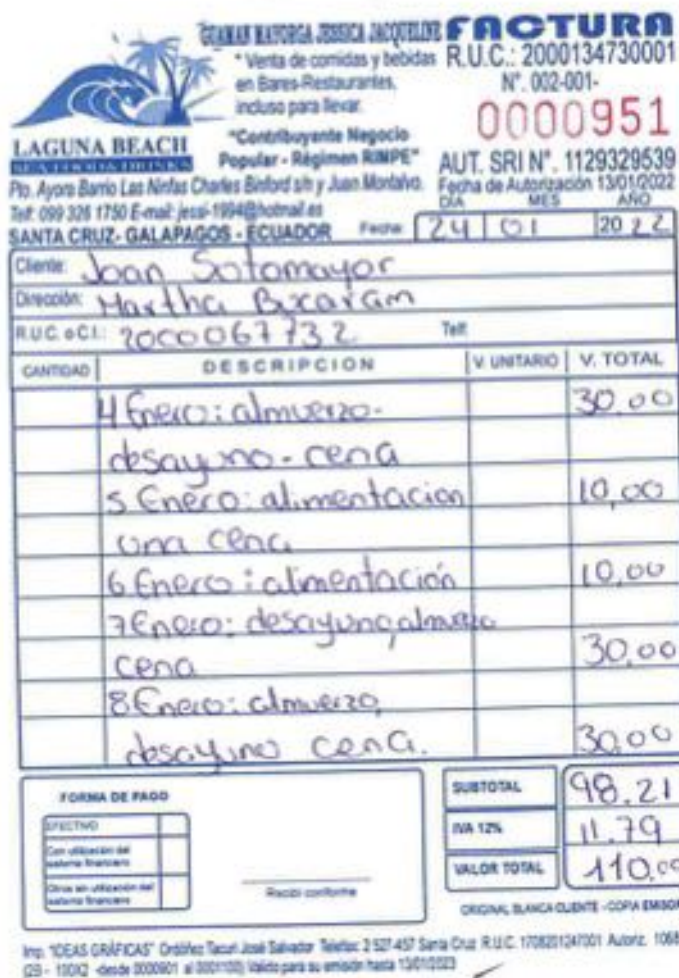 GUAMAN MAYORGA JESSICA JACQUELINE
FACTURA
* Venta de comidas y bebidas
en Bares-Restaurantes,
incluso para llevar.
"Contribuyente Negocio
Popular - Régimen RIMPE"
R.U.C.: 2000134730001
N°. 002-001-
0000951
AUT. SRI N°. 1129329539
Fecha de Autorización 13/01/2022
LAGUNA BEACH
SEA FOOD & DRINKS
Pto. Ayora Barrio Las Ninfas Charles Binford s/n y Juan Montalvo.
Telf: 099 326 1750 E-mail: jessi-1994@hotmail.es
SANTA CRUZ- GALAPAGOS - ECUADOR
Fecha:
DÍA MES AÑO
24 01 2022
Cliente: Joan Sotomayor
Dirección: Martha Bucaram
R.U.C. o C.I.: 2000067732 Telf:
CANTIDAD DESCRIPCION V. UNITARIO V. TOTAL
4 Enero: almuerzo- 30.00
desayuno - cena
5 Enero: alimentacion 10,00
una cena
6 Enero: alimentación 10,00
7 Enero: desayuno, almuerzo
cena 30,00
8 Enero: almuerzo,
desayuno cena. 30,00
FORMA DE PAGO
EFECTIVO
Con utilización del
sistema financiero
Otros sin utilización del
sistema financiero
Recibí conforme
SUBTOTAL 98.21
IVA 12% 11.79
VALOR TOTAL 110,00
ORIGINAL BLANCA CLIENTE - COPIA EMISOR
Imp. "IDEAS GRÁFICAS" Ordóñez Tacuri José Salvador Telefax: 2 527-457 Santa Cruz R.U.C. 1708201247001 Autoriz. 1068
(23 - 100X2 -desde 0000901 al 0001100) Válido para su emisión hasta 13/01/2023